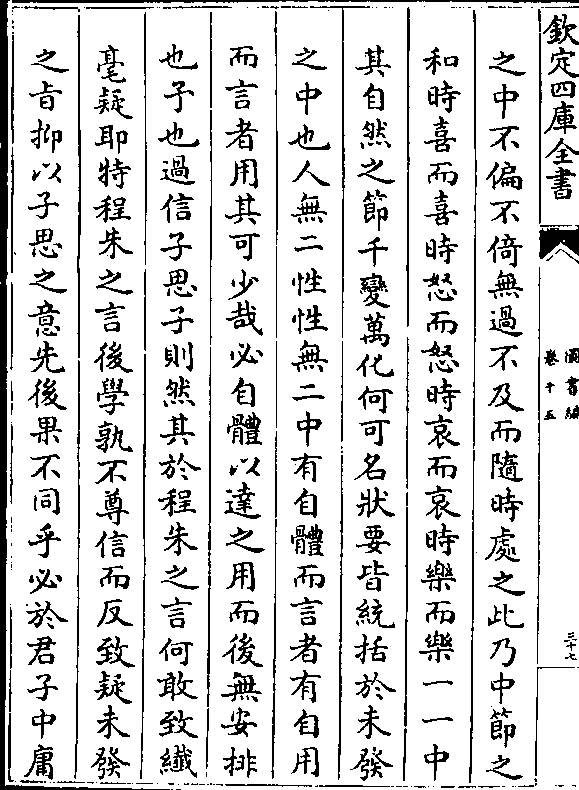 欽定四庫全書
圖書編
卷十五
三十七
之中不偏不倚無過不及而隨時處之此乃中節之
和時喜而喜時怒而怒時哀而哀時樂而樂一一中
其自然之節千變萬化何可名狀要皆統括於未發
之中也人無二性性無二中有自體而言者有自用
而言者用其可少哉必自體以達之用而後無安排
也予也過信子思子則然其於程朱之言何敢致纎
毫疑耶特程朱之言後學孰不尊信而反致疑未發
之旨抑以子思之意先後果不同乎必於君子中庸